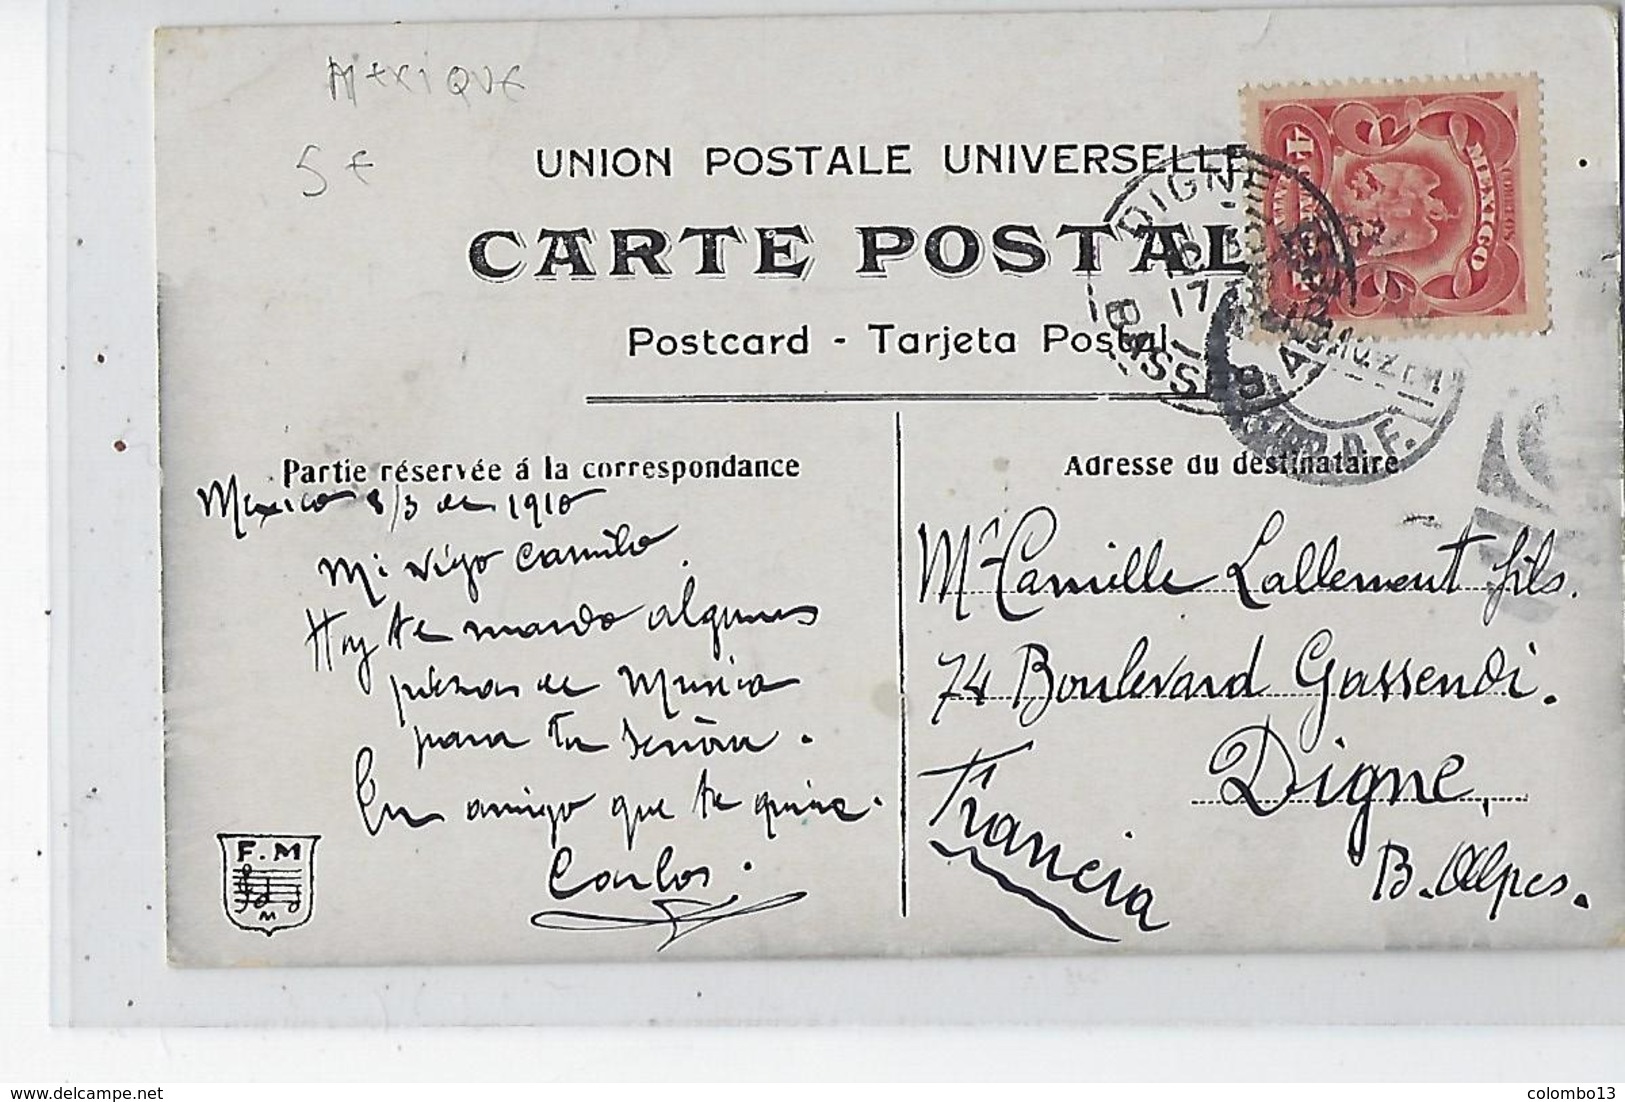 MEXIQUE
5 €
UNION POSTALE UNIVERSELLE
CARTE POSTAL
Postcard - Tarjeta Postal
MEXICO
4
DIGNE
17
BASSES ALPES
D.F.
Partie réservée á la correspondance
Mexico 8/3 de 1910
Mi viejo Camilo.
Hoy te mando algunas
piezas de Musica
para tu señora.
Un amigo que te quiere.
Carlos.
F. M
M
Adresse du destinataire
Mr Camille Lallement fils.
74 Boulevard Gassendi.
Digne,
B. Alpes.
Francia
www.delcampe.net
colombo13